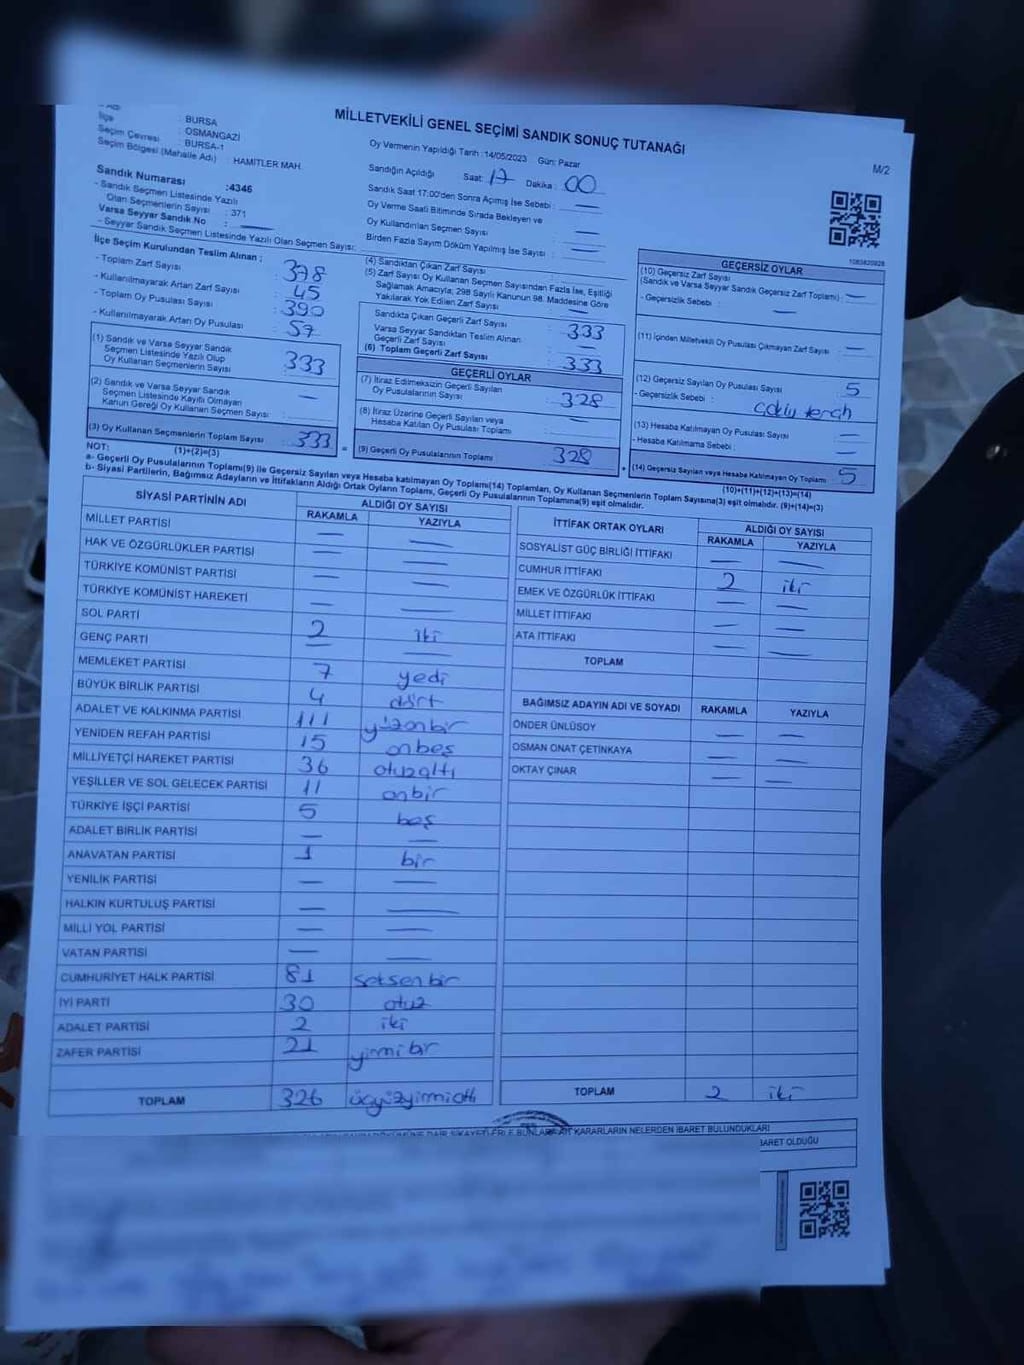 MİLLETVEKİLİ GENEL SEÇİMİ SANDIK SONUÇ TUTANAĞI
M/2
İlçe : BURSA
Seçim Çevresi : OSMANGAZİ
Seçim Bölgesi (Mahalle Adı) : BURSA-1
HAMİTLER MAH.
Sandık Numarası :4346
- Sandık Seçmen Listesinde Yazılı
Olan Seçmenlerin Sayısı : 371
Varsa Seyyar Sandık No : —
- Seyyar Sandık Seçmen Listesinde Yazılı Olan Seçmen Sayısı:
Oy Vermenin Yapıldığı Tarih :14/05/2023 Gün: Pazar
Sandığın Açıldığı Saat: 17 Dakika : 00
Sandık Saat 17:00'den Sonra Açılmış İse Sebebi : —
Oy Verme Saati Bitiminde Sırada Bekleyen ve
Oy Kullandırılan Seçmen Sayısı —
Birden Fazla Sayım Döküm Yapılmış İse Sayısı : —
1083820928
İlçe Seçim Kurulundan Teslim Alınan :
- Toplam Zarf Sayısı : 378
- Kullanılmayarak Artan Zarf Sayısı : 45
- Toplam Oy Pusulası Sayısı : 390
- Kullanılmayarak Artan Oy Pusulası : 57
(1) Sandık ve Varsa Seyyar Sandık
Seçmen Listesinde Yazılı Olup
Oy Kullanan Seçmenlerin Sayısı : 333
(2) Sandık ve Varsa Seyyar Sandık
Seçmen Listesinde Kayıtlı Olmayan
Kanun Gereği Oy Kullanan Seçmen Sayısı : —
(3) Oy Kullanan Seçmenlerin Toplam Sayısı : 333 =
(1)+(2)=(3)
(4) Sandıktan Çıkan Zarf Sayısı :
(5) Zarf Sayısı Oy Kullanan Seçmen Sayısından Fazla İse, Eşitliği
Sağlamak Amacıyla; 298 Sayılı Kanunun 98. Maddesine Göre
Yakılarak Yok Edilen Zarf Sayısı : —
Sandıkta Çıkan Geçerli Zarf Sayısı : 333
Varsa Seyyar Sandıktan Teslim Alınan
Geçerli Zarf Sayısı
(6) Toplam Geçerli Zarf Sayısı : 333
GEÇERLİ OYLAR
(7) İtiraz Edilmeksizin Geçerli Sayılan
Oy Pusulalarının Sayısı : 328
(8) İtiraz Üzerine Geçerli Sayılan veya
Hesaba Katılan Oy Pusulası Toplamı : —
(9) Geçerli Oy Pusulalarının Toplamı : 328 +
GEÇERSİZ OYLAR
(10) Geçersiz Zarf Sayısı
(Sandık ve Varsa Seyyar Sandık Geçersiz Zarf Toplamı) : —
- Geçersizlik Sebebi : —
(11) İçinden Milletvekili Oy Pusulası Çıkmayan Zarf Sayısı : —
(12) Geçersiz Sayılan Oy Pusulası Sayısı : 5
- Geçersizlik Sebebi :
(13) Hesaba Katılmayan Oy Pusulası Sayısı : —
- Hesaba Katılmama Sebebi : —
(14) Geçersiz Sayılan veya Hesaba Katılmayan Oy Toplamı : 5
(10)+(11)+(12)+(13)=(14)
NOT:
a- Geçerli Oy Pusulalarının Toplamı(9) ile Geçersiz Sayılan veya Hesaba katılmayan Oy Toplamı(14) Toplamları, Oy Kullanan Seçmenlerin Toplam Sayısına(3) eşit olmalıdır. (9)+(14)=(3)
b- Siyasi Partilerin, Bağımsız Adayların ve İttifakların Aldığı Ortak Oyların Toplamı, Geçerli Oy Pusulalarının Toplamına(9) eşit olmalıdır.
SİYASİ PARTİNİN ADI ALDIĞI OY SAYISI
RAKAMLA YAZIYLA
MİLLET PARTİSİ — —
HAK VE ÖZGÜRLÜKLER PARTİSİ — —
TÜRKİYE KOMÜNİST PARTİSİ — —
TÜRKİYE KOMÜNİST HAREKETİ — —
SOL PARTİ 2 iki
GENÇ PARTİ — —
MEMLEKET PARTİSİ 7 yedi
BÜYÜK BİRLİK PARTİSİ 4 dört
ADALET VE KALKINMA PARTİSİ 111 yüzonbir
YENİDEN REFAH PARTİSİ 15 onbeş
MİLLİYETÇİ HAREKET PARTİSİ 36 otuzaltı
YEŞİLLER VE SOL GELECEK PARTİSİ 11 onbir
TÜRKİYE İŞÇİ PARTİSİ 5 beş
ADALET BİRLİK PARTİSİ — —
ANAVATAN PARTİSİ 1 bir
YENİLİK PARTİSİ — —
HALKIN KURTULUŞ PARTİSİ — —
MİLLİ YOL PARTİSİ — —
VATAN PARTİSİ — —
CUMHURİYET HALK PARTİSİ 81 seksenbir
İYİ PARTİ 30 otuz
ADALET PARTİSİ 2 iki
ZAFER PARTİSİ 21 yirmibir
TOPLAM 326 üçyüzyirmialtı
İTTİFAK ORTAK OYLARI ALDIĞI OY SAYISI
RAKAMLA YAZIYLA
SOSYALİST GÜÇ BİRLİĞİ İTTİFAKI — —
CUMHUR İTTİFAKI 2 iki
EMEK VE ÖZGÜRLÜK İTTİFAKI — —
MİLLET İTTİFAKI — —
ATA İTTİFAKI — —
TOPLAM
BAĞIMSIZ ADAYIN ADI VE SOYADI RAKAMLA YAZIYLA
ÖNDER ÜNLÜSOY — —
OSMAN ONAT ÇETİNKAYA — —
OKTAY ÇINAR — —
TOPLAM 2 iki
KARARLARIN NELERDEN İBARET BULUNDUKLARI
BARET OLDUĞU